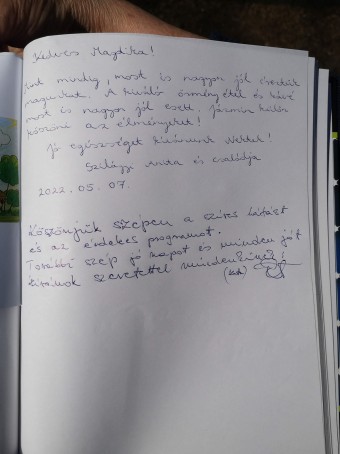 Kedves Magdika!
Mint mindig, most is nagyon jól éreztük
magunkat. A kiváló örmény étel és kávé
most is nagyon jól esett. Jázmin külön
köszöni az élményeket!
Jó egészséget kívánunk Nektek!
Szilágyi Anita és családja
2022. 05. 07.
Köszönjük szépen a szíves látást
és az érdekes programot.
További szép jó napot és minden jót
kívánok szeretettel mindenkinek!